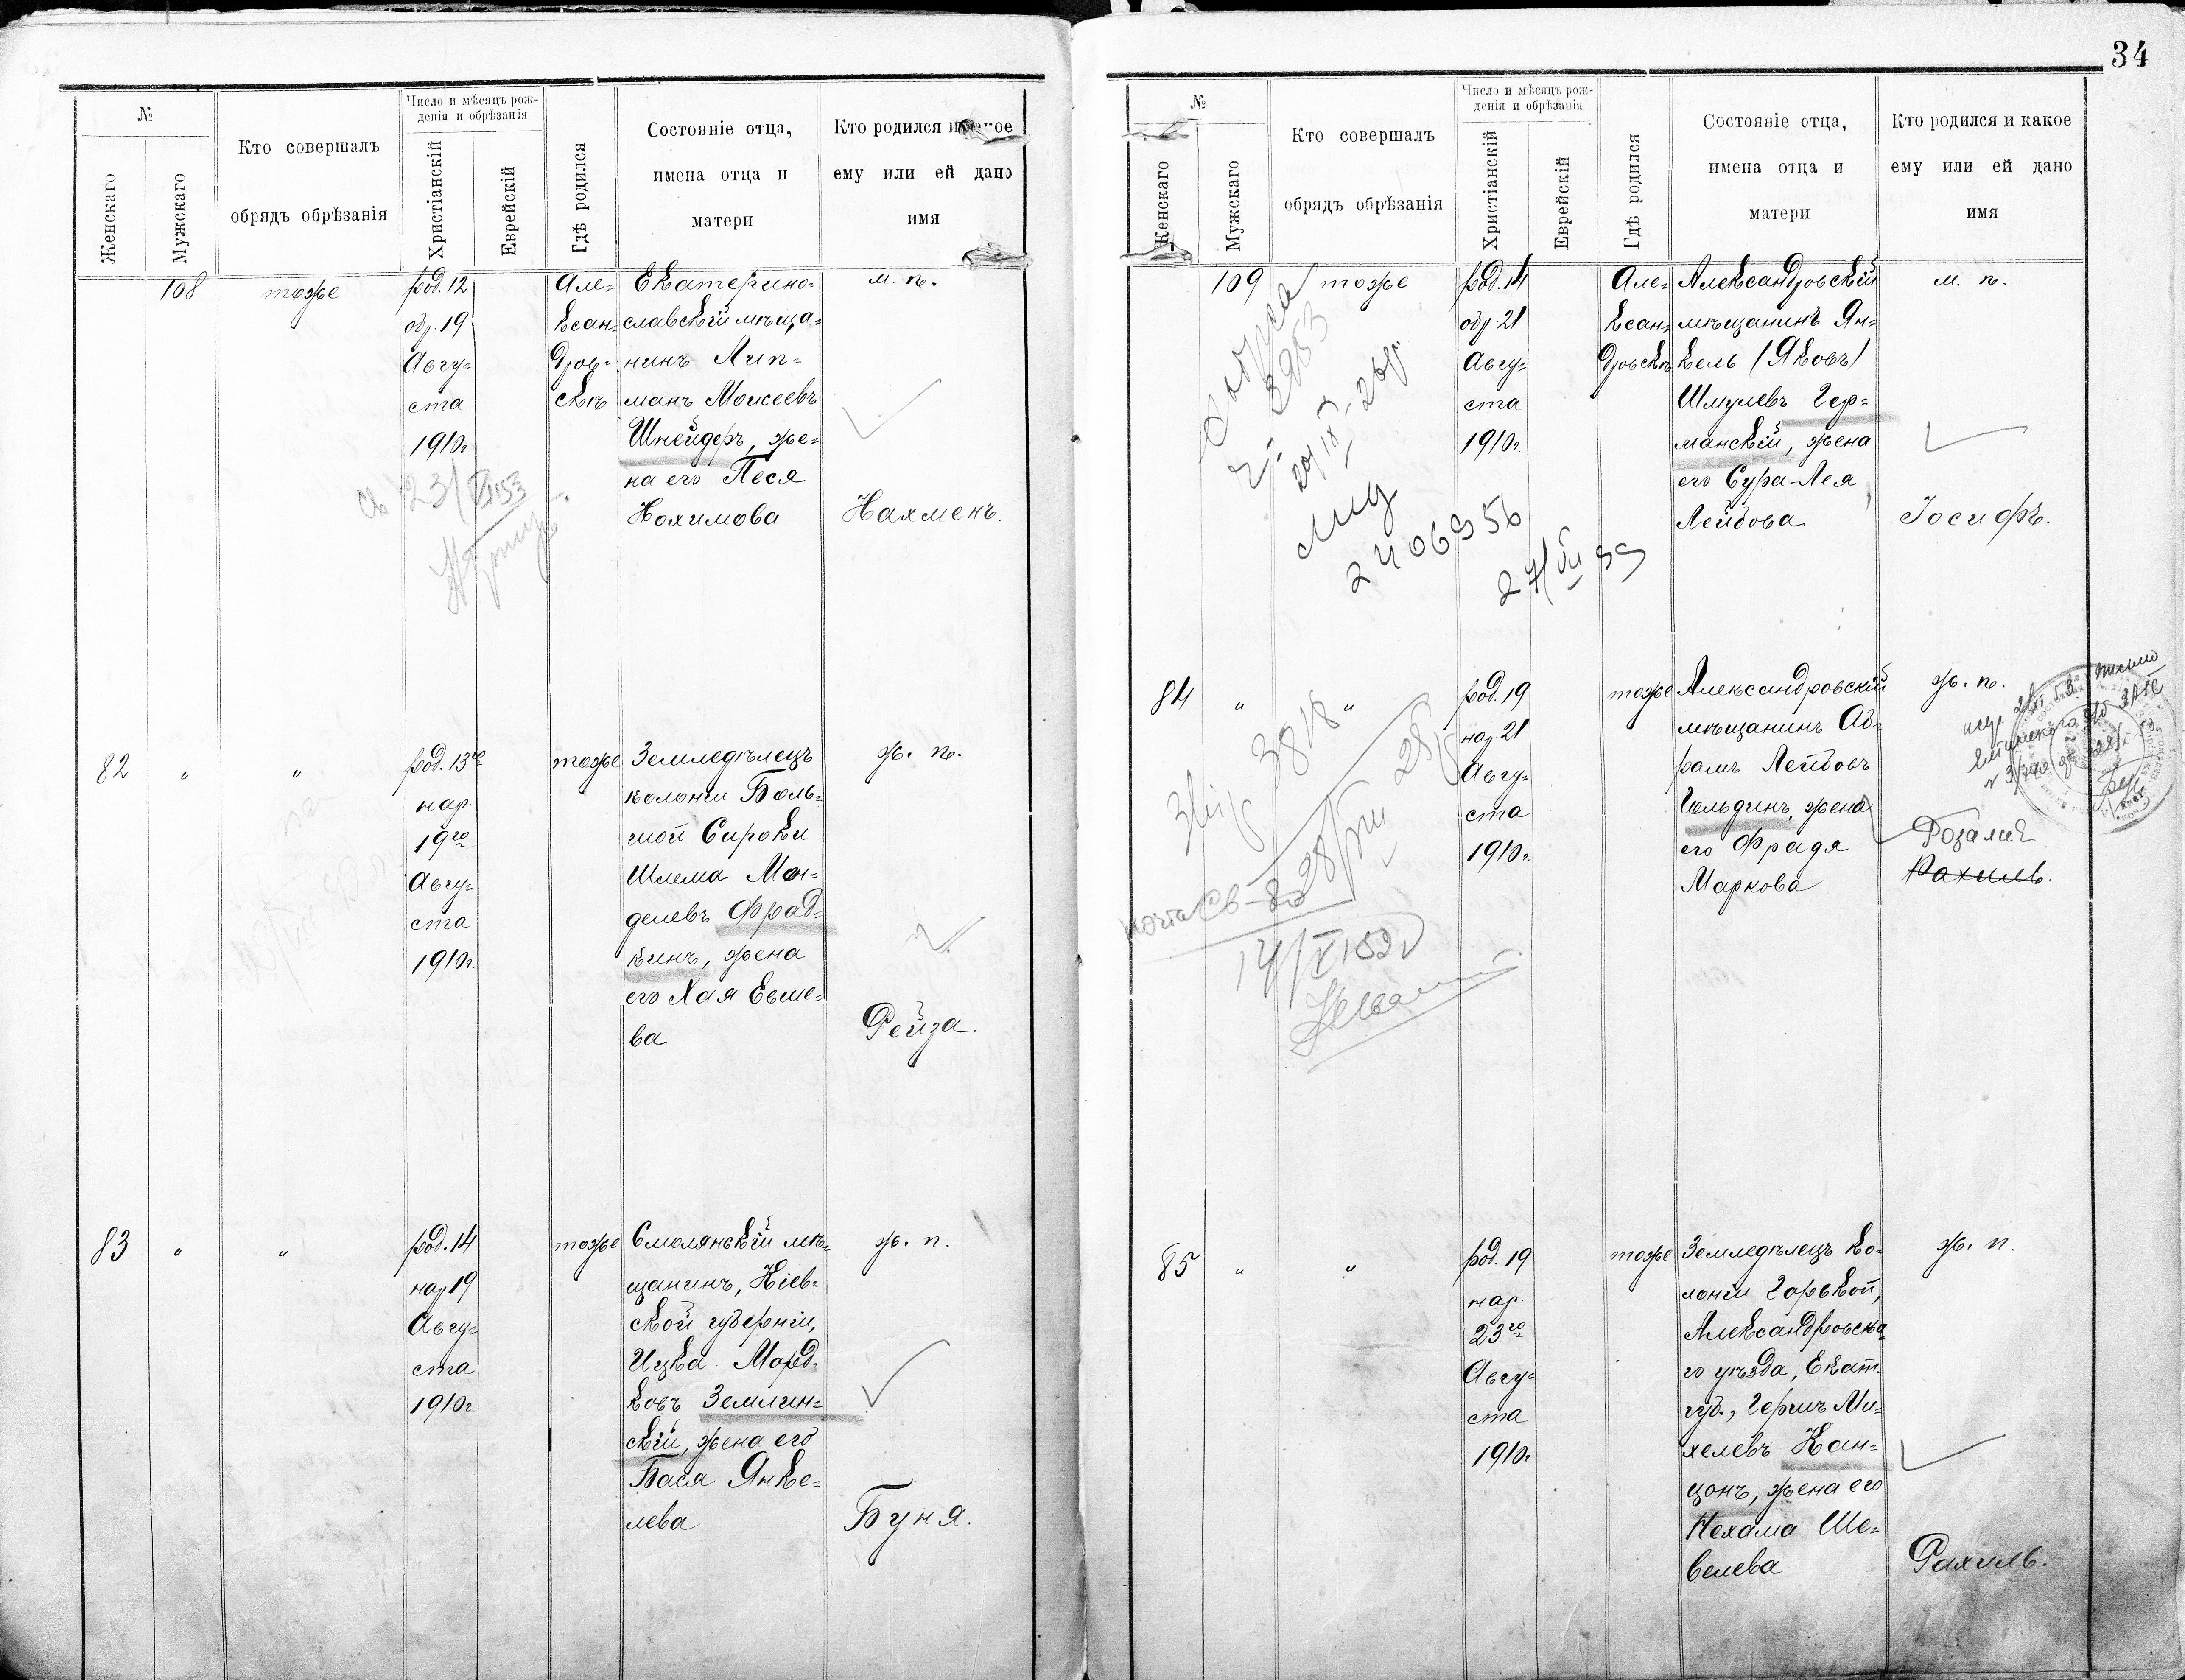 34
№
Женскаго
Мужскаго
Кто совершалъ
обрядъ обрѣзанія
Число и мѣсяцъ рож-
денія и обрѣзанія
Христіанскій
Еврейскій
Гдѣ родился
Состояніе отца,
имена отца и
матери
Кто родился и какое
ему или ей дано
имя
108
тоже
род. 12
обр. 19
Авгу=
ста
1910г.
Але=
ксан=
дров=
скѣ
Екатерино=
славскій мѣща=
нинъ Лип=
манъ Моисеевъ
Шнейдеръ, же=
на его Песя
Нохимова
м. п.
Нахменъ.
23/VII 53
82
"
"
род. 13го
нар.
19го
Авгу=
ста
1910г.
тоже
Земледѣлецъ
колоніи Боль=
шой Сироки
Шлема Мен=
делевъ Фрад=
кинъ, жена
его Хая Евше=
ва
ж. п.
Рейза.
83
"
"
род. 14
нар 19
Авгу=
ста
1910г.
тоже
Смолянскій мѣ=
щанинъ, Кіев=
ской губерніи,
Ицка Морд=
ковъ Землин=
скій, жена его
Бася Янке=
лева
ж. п.
Буня.
№
Женскаго
Мужскаго
Кто совершалъ
обрядъ обрѣзанія
Число и мѣсяцъ рож-
денія и обрѣзанія
Христіанскій
Еврейскій
Гдѣ родился
Состояніе отца,
имена отца и
матери
Кто родился и какое
ему или ей дано
имя
109
тоже
род. 14
обр. 21
Авгу=
ста
1910г.
Але=
ксан=
дровскѣ
Александровскій
мѣщанинъ Ян=
кель (Яковъ)
Шмулевъ Гер=
манскій, жена
его Сура-Лея
Лейбова
м. п.
Іосифъ.
2406956
27/VII 55
84
"
"
род. 19
нар. 21
Авгу=
ста
1910г.
тоже
Александровскій
мѣщанинъ Аб=
рамъ Лейбовъ
Гольдинъ, жена
его Фрадя
Маркова
ж. п.
Розалия
Рахиль.
3818
28/VII
85
"
"
род. 19
нар.
23го
Авгу=
ста
1910г.
тоже
Земледѣлецъ ко=
лоніи Горькой,
Александровска=
го уѣзда, Екат.
губ., Гершъ Ми=
хелевъ Кан=
цонъ, жена его
Нехама Ше=
велева
ж. п.
Рахиль.